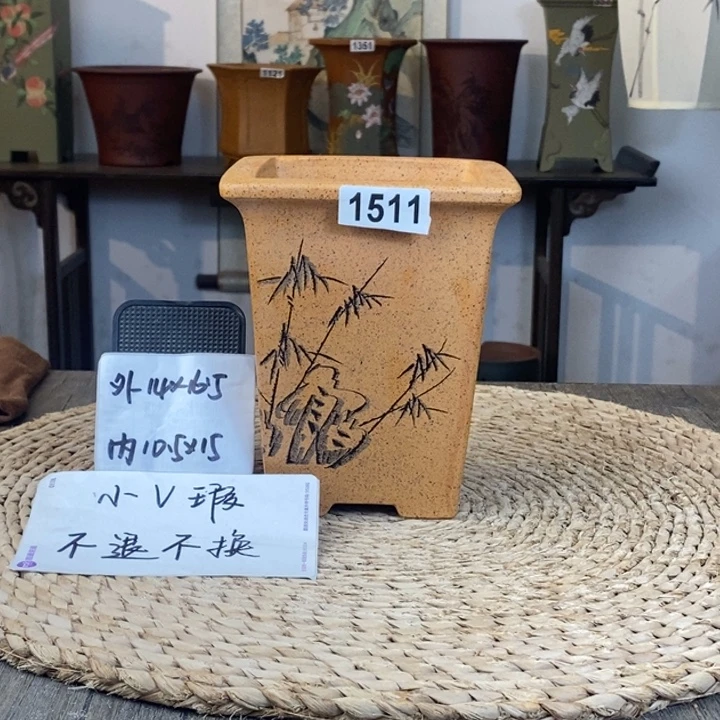 1351
1121
1511
外14×16.5
内10.5×15
小V瑕
不退不换